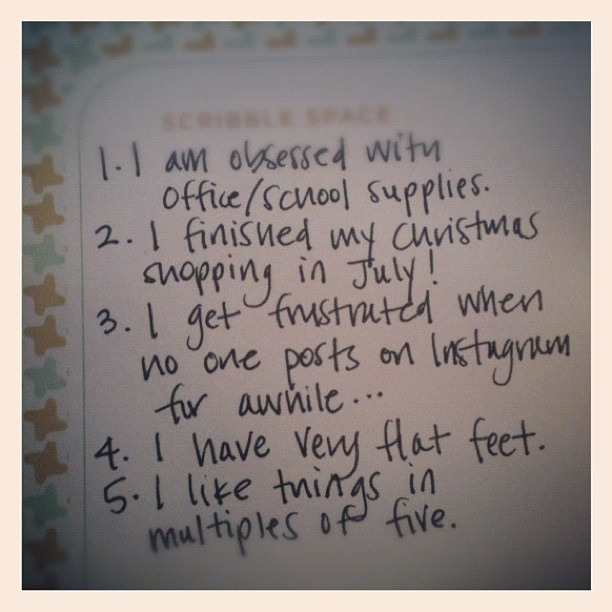 SCRIBBLE SPACE
1. I am obsessed with
office/school supplies.
2. I finished my Christmas
shopping in July!
3. I get frustrated when
no one posts on Instagram
for awhile...
4. I have very flat feet.
5. I like things in
multiples of five.